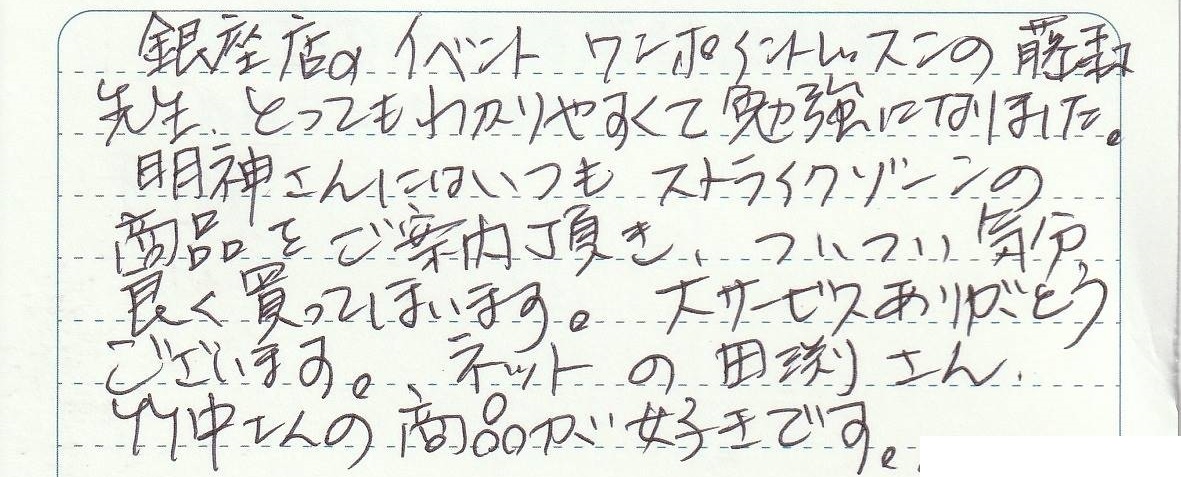 銀座店の イベント ワンポイントレッスンの
先生、とってもわかりやすくて勉強になりました。
明神さんにはいつも ストライクゾーンの
商品をご案内頂き、ついつい気分
良く買ってしまいます。大サービスありがとう
ございます。、ネットの田渕さん、
竹中さんの商品が好きです。